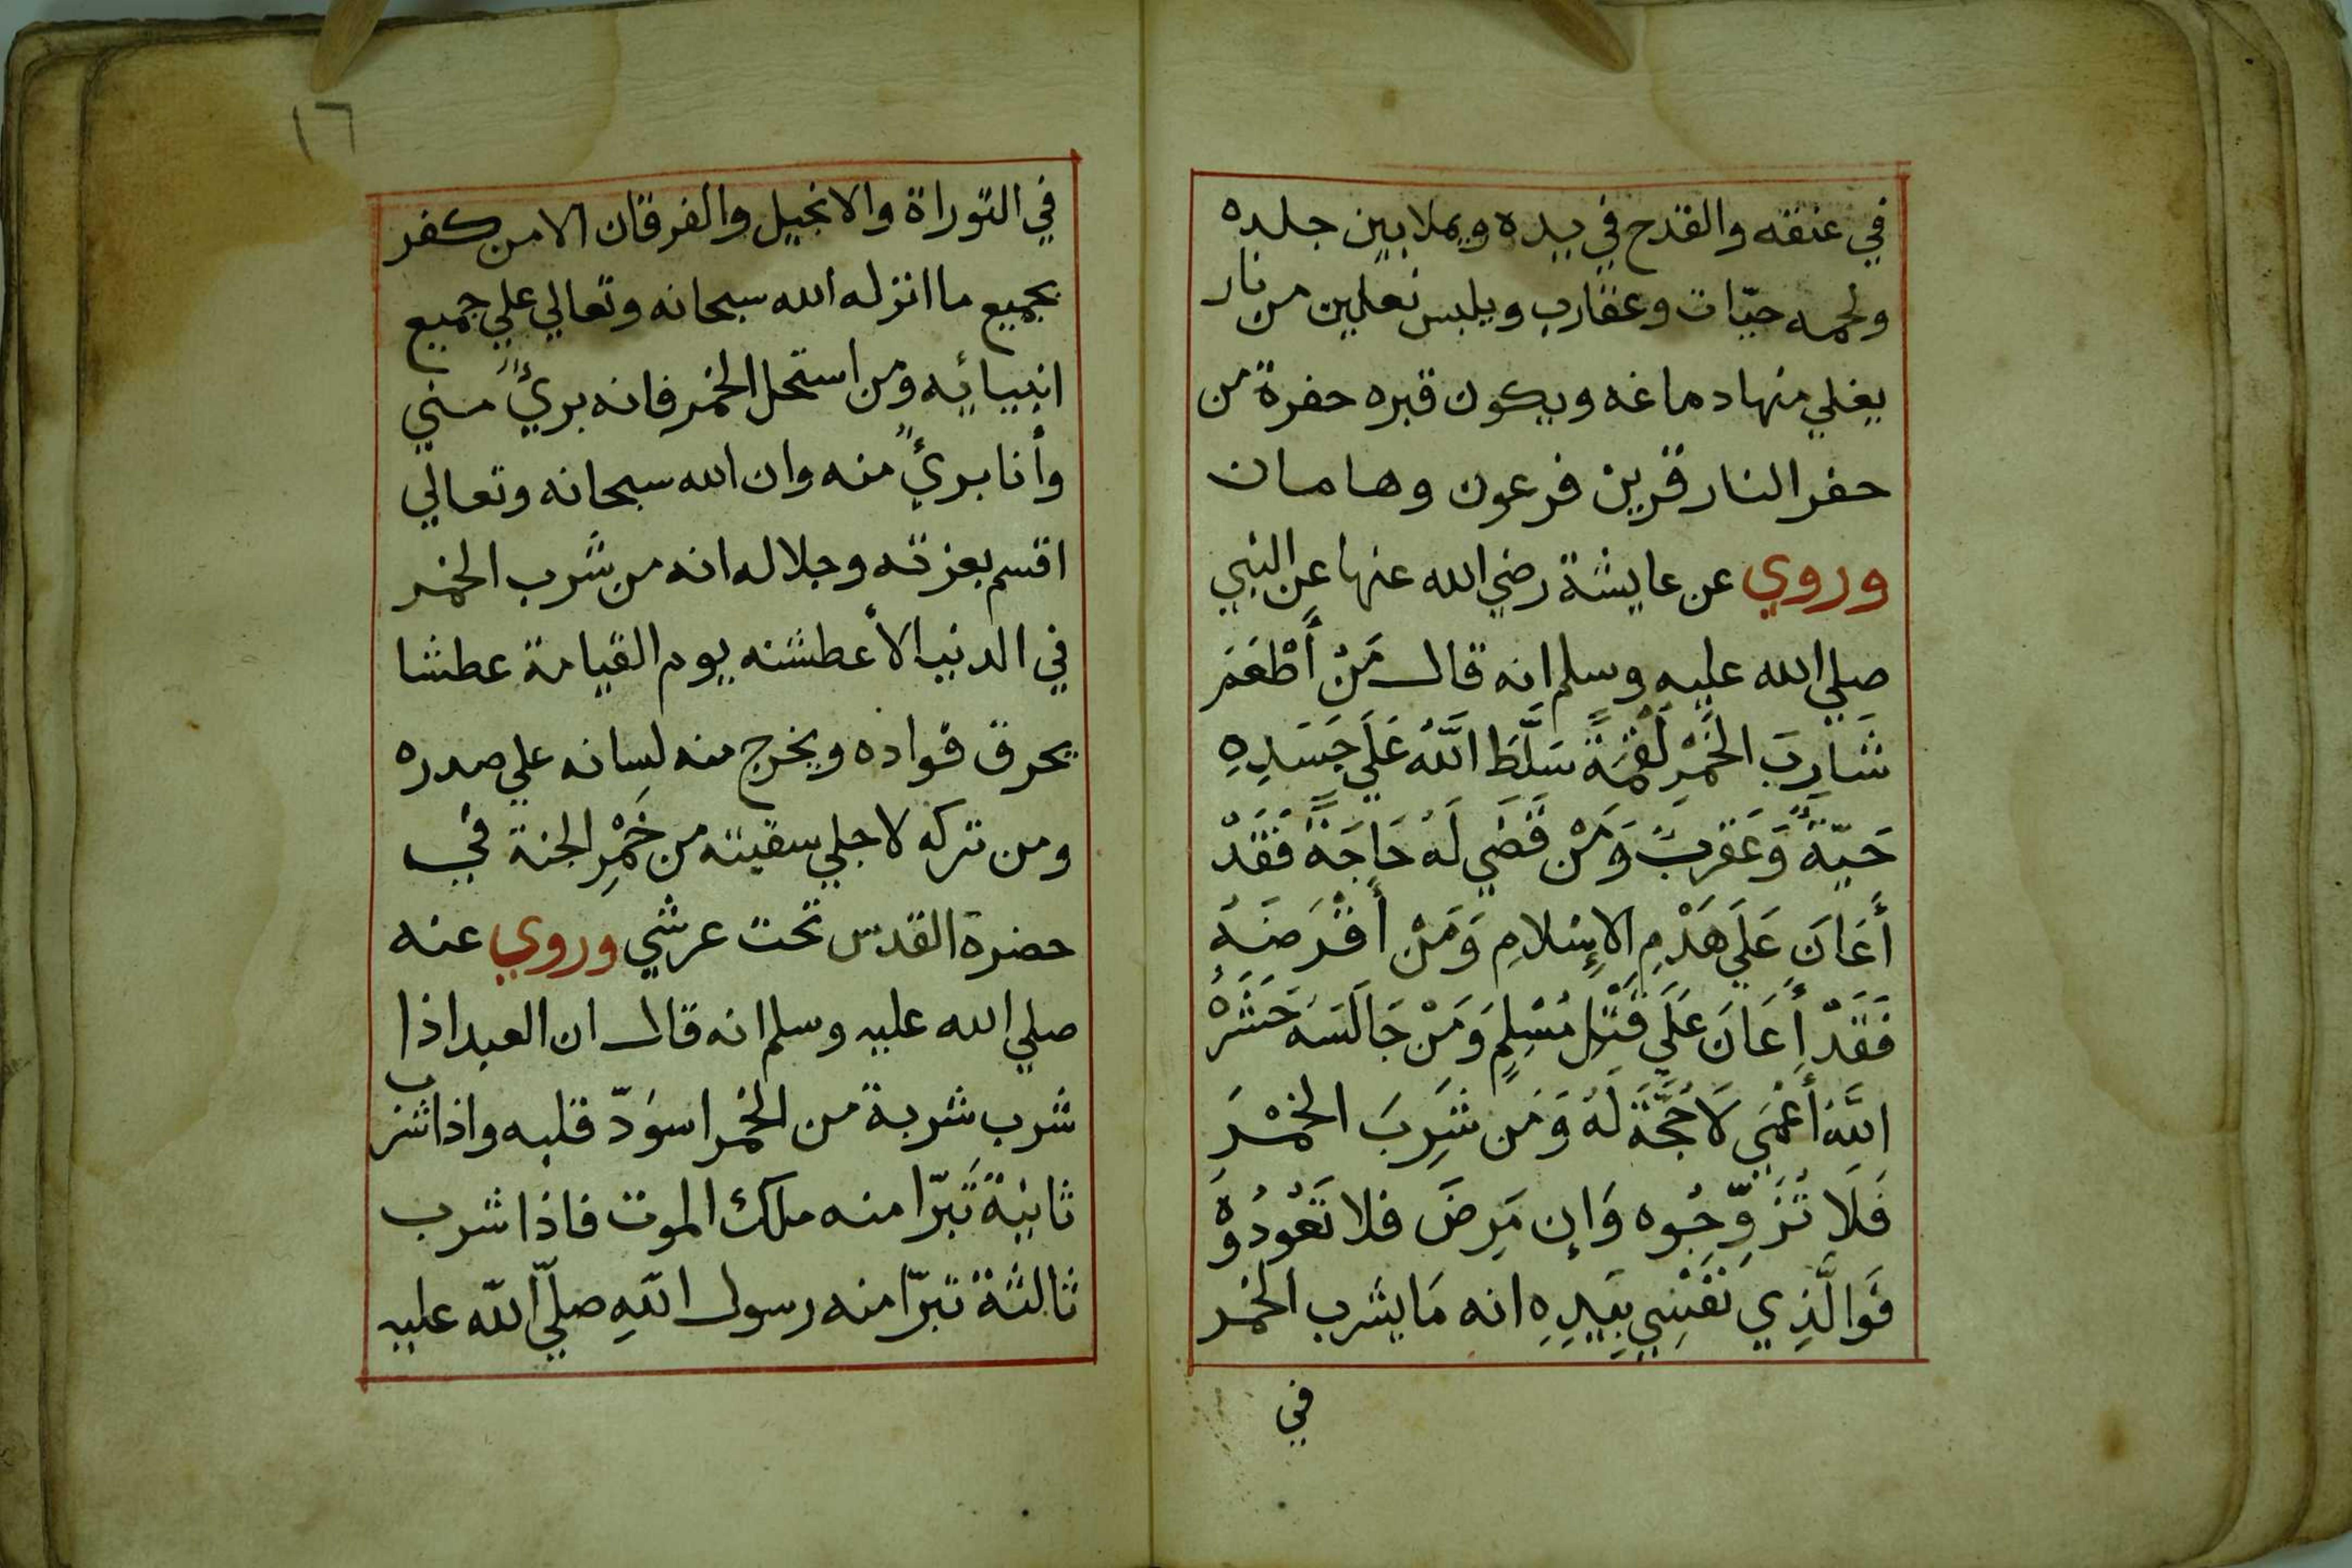 في عنقه والقدح في يده ويملا بين جلده
ولحمه حيّات وعقارب ويلبس نعلين من نار
يغلي منها دماغه ويكون قبره حفرة من
حفر النار قرين فرعون وهامان
وروي عن عايشة رضي الله عنها عن النبي
صلي الله عليه وسلم انه قال مَنْ أَطْعَمَ
شَارِبَ الخَمْرِ لُقْمَةً سَلَّطَ اللَّهُ عَلَي جَسَدِهِ
حَيّةً وَعَقربً وَمَنْ قَضَي لَهُ حَاجَةً فَقَدْ
أَعَانَ عَلَي هَدْمِ الإِسْلامِ وَمَنْ أَقْرَضَهُ
فَقَدْ أَعَانَ عَلَي قَتْلِ مُسْلِمٍ وَمَنْ جَالَسَهُ حَشَرَهُ
اللَّهُ أَعْمَي لَا حُجَّةَ لَهُ وَمَن شَرِبَ الخَمْرَ
فَلَا تُزَوِّجُوه وَإِن مَرِضَ فلا تَعُودُوهُ
فَوَالَّذِي نَفْسِي بِيَدِهِ انه مَا يشرب الخمر
في
١٦
في التوراة والانجيل والفرقان الا من كفر
بجميع ما انزله الله سبحانه وتعالي علي جميع
انبيائه ومن استحل الخمر فانه بريءٌ مني
وأنا بريءٌ منه وان الله سبحانه وتعالي
اقسم بعزته وجلاله انه من شرب الخمر
في الدنيا الأعطشنه يوم القيامة عطشا
يحرق فواده ويخرج منه لسانه علي صدره
ومن تركه لاجلي سقيته من خَمْرِ الجنة في
حضرة القدس تحت عرشي وروي عنه
صلي الله عليه وسلم انه قال ان العبد اذا
شرب شربة من الخمر اسوَدّ قلبه واذا شرب
ثانيةً تَبرّا منه ملك الموت فاذا شرب
ثالثة تبرّا منه رسول اللهِ صلّي الله عليه